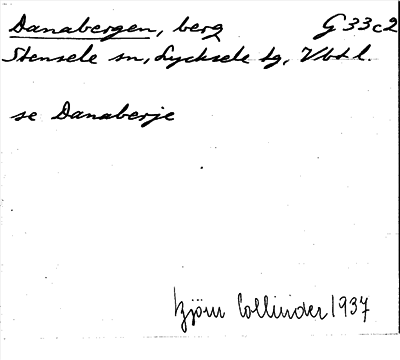 Danabergen, berg G 33c2
Stensele sn, Lycksele tg, Vbtl.
se Danaberje
Björn Collinder 1937